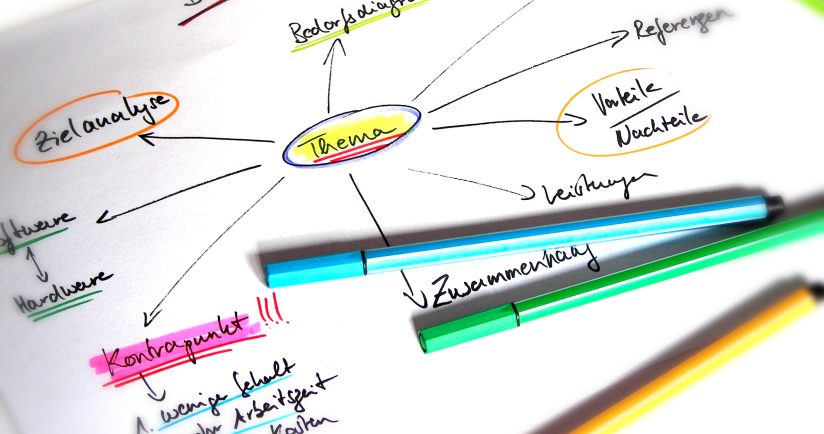 Bedarfsdiagra
Referenzen
Zielanalyse
Vorteile
Nachteile
Thema
Leistungen
oftware
Zusammenhang
Hardware
Kontrapunkt !!!
1. weniger Gehalt
Arbeitszeit
Kosten